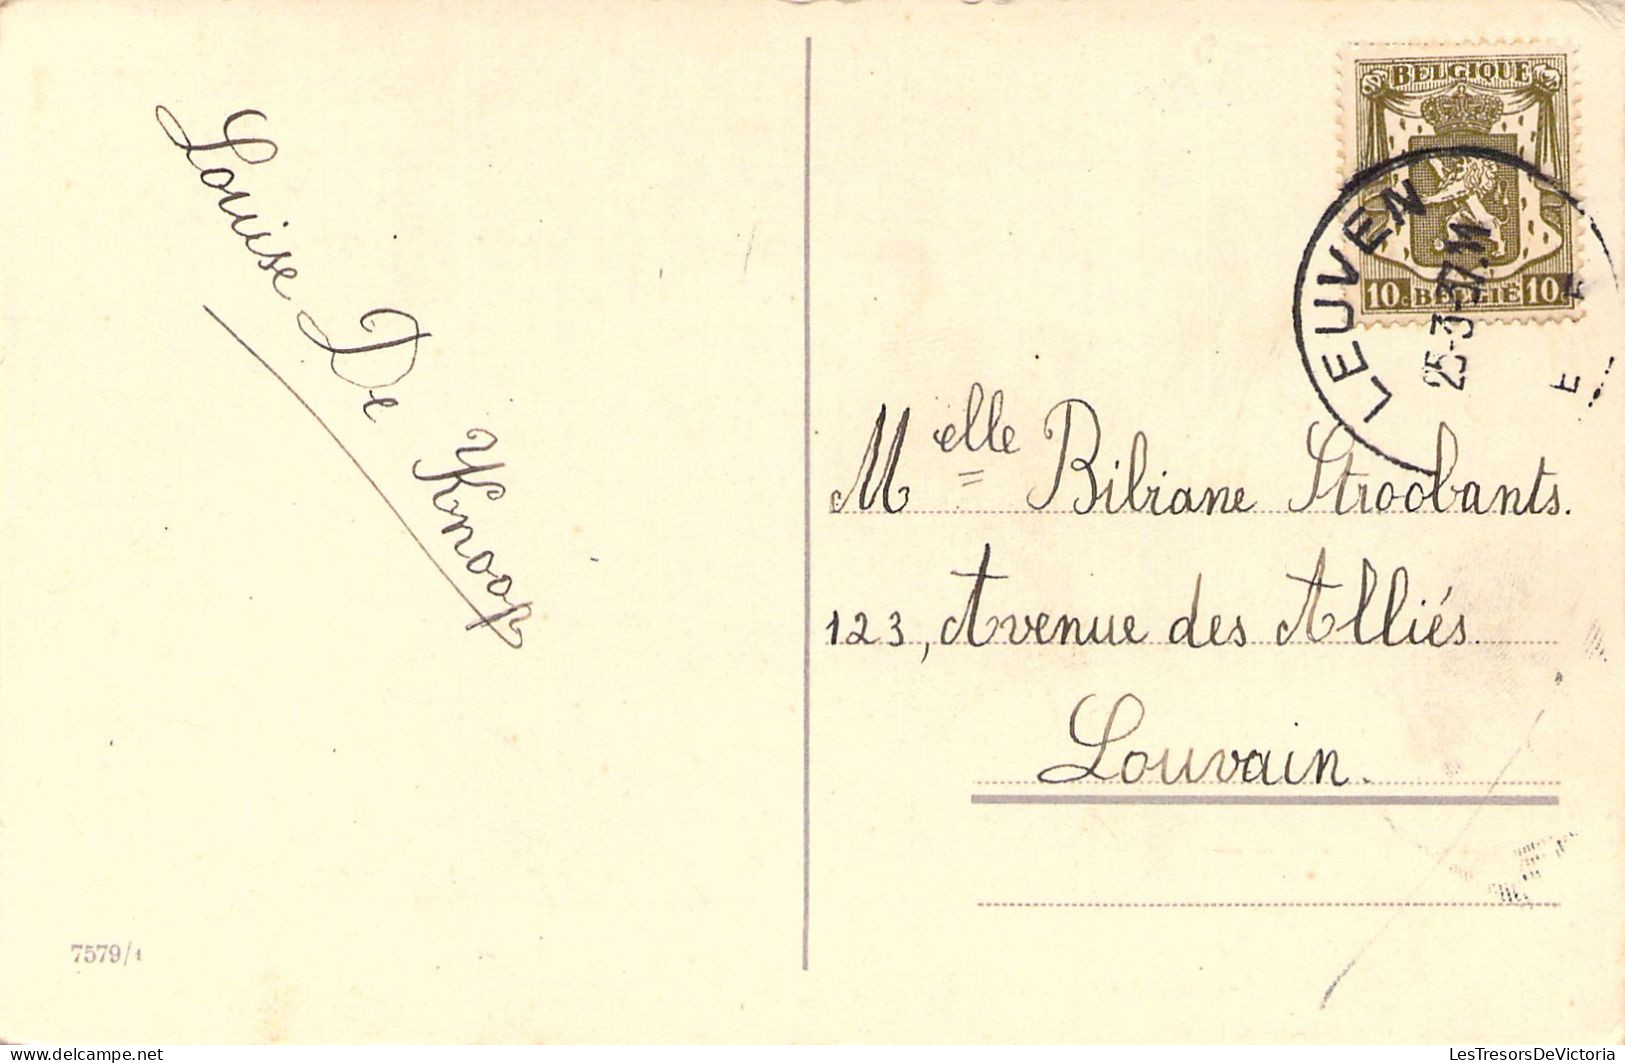 Louise De Knoop
BELGIQUE
10c BELGIË 10c
LEUVEN
25-3-37.11
Melle Bibiane Stroobants.
123, Avenue des Alliés
Louvain.
7579/1
delcampe.net
LesTresorsDeVictoria